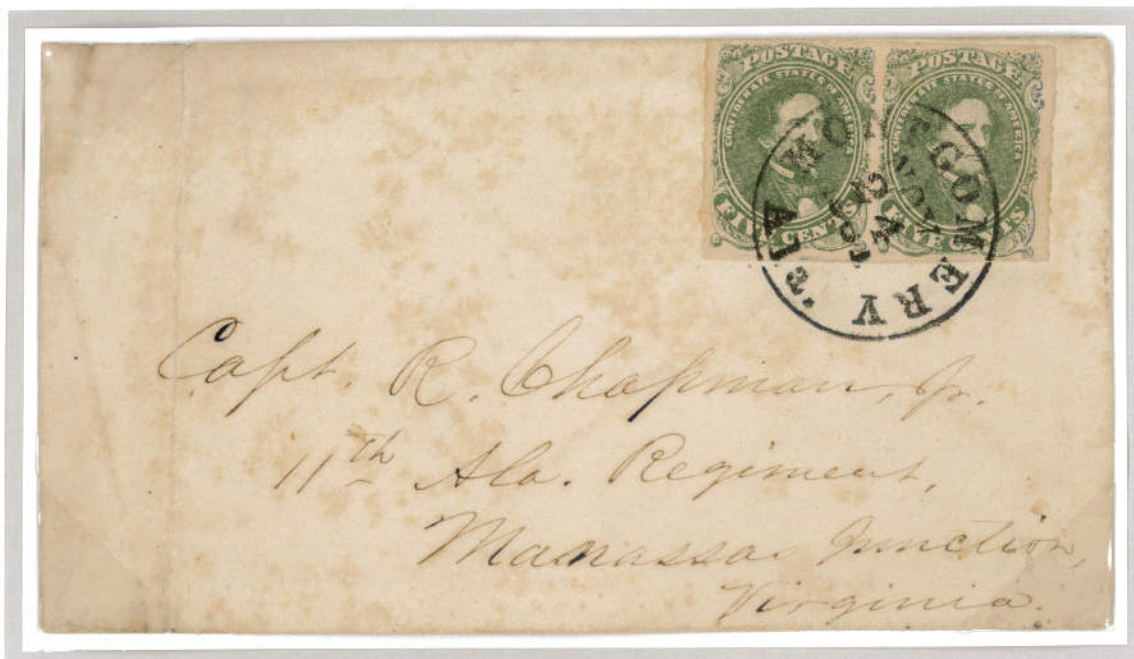 POSTAGE
CONFEDERATE STATES OF AMERICA
FIVE CENTS
POSTAGE
CONFEDERATE STATES OF AMERICA
FIVE CENTS
MONTGOMERY Ala.
NOV
Capt. R. Chapman, Jr.
11th Ala. Regiment,
Manassas Junction,
Virginia.